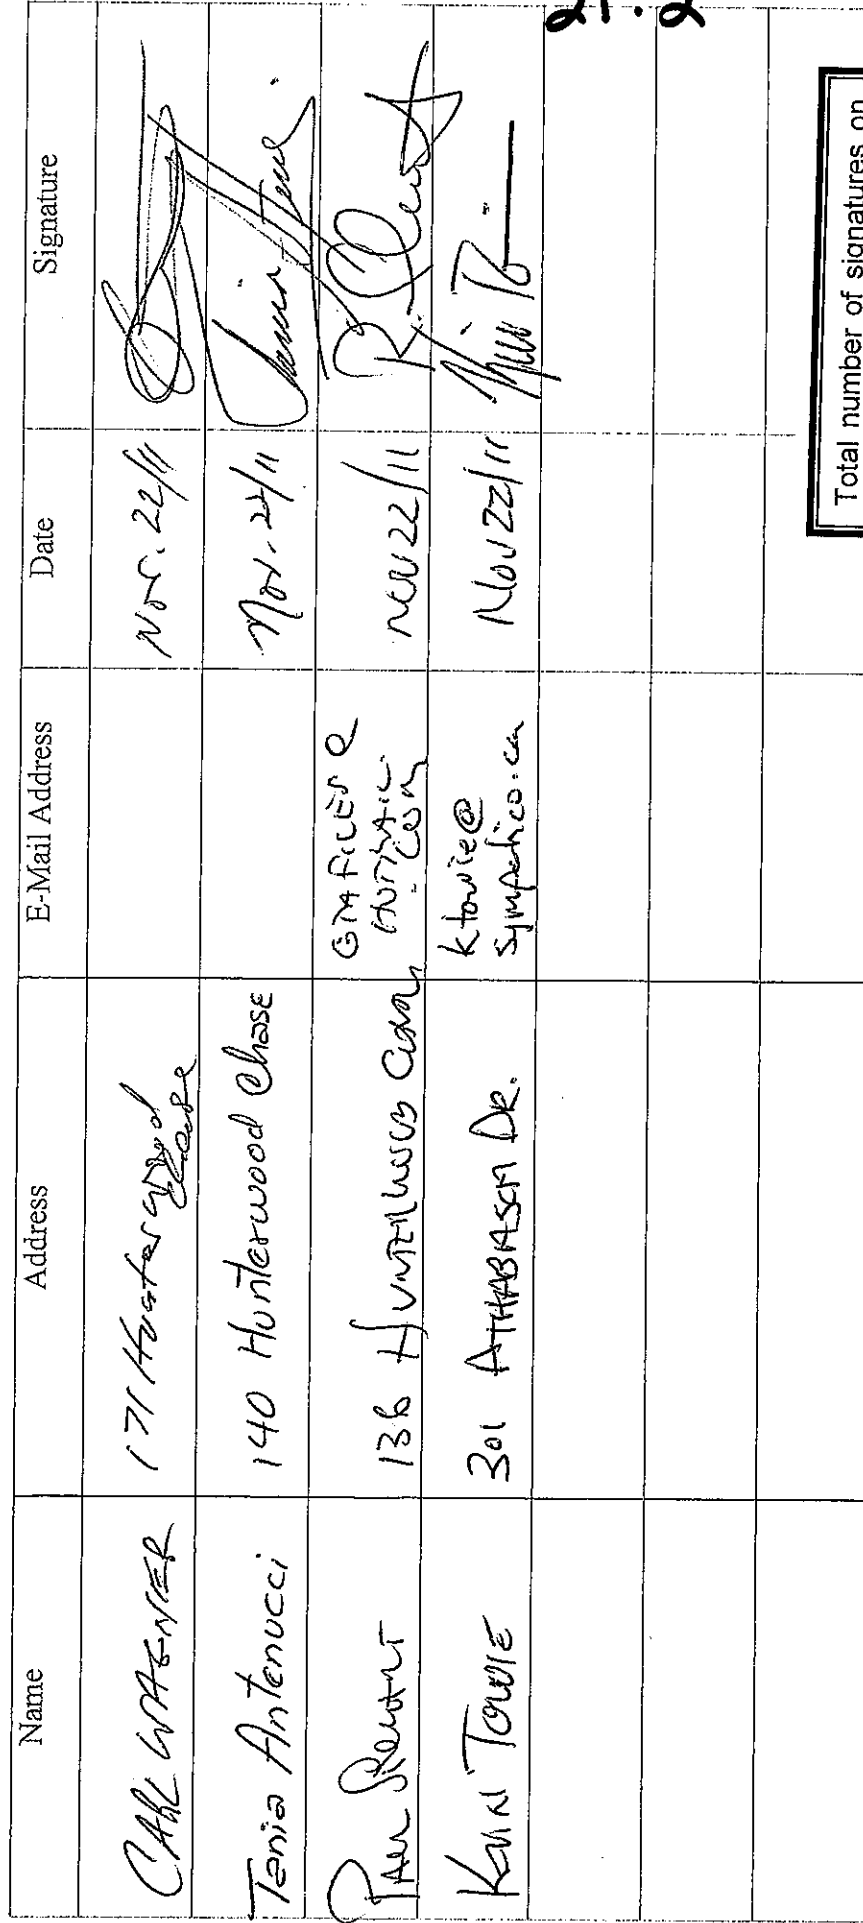 21.2
Name Address E-Mail Address Date Signature
CARL WAGNER 171 Hunterswood Chase Nov. 22/11
Tania Antenucci 140 Hunterwood Chase Nov. 22/11
Paul 136 GMAFILES@
HOTMAIL.COM Nov 22/11
Kevin TOWIE 301 ATHABASCA DR. ktowie@
sympatico.ca Nov 22/11
Total number of signatures on